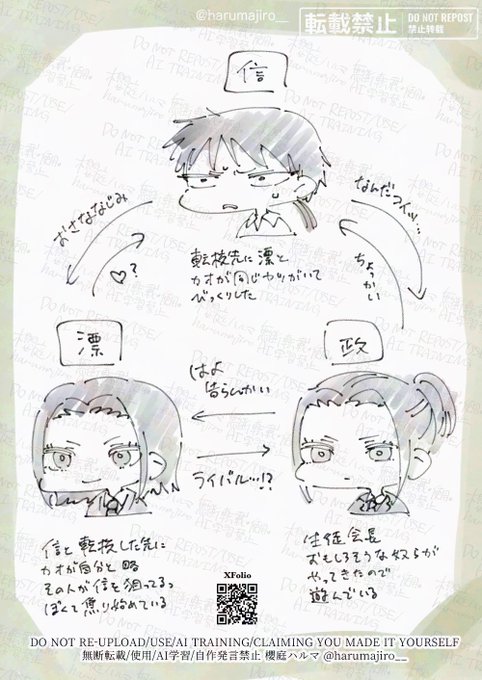 @harumajiro__
転載禁止
DO NOT REPOST
禁止转载
信
おさななじみ
♡?
なんだコイツ…
ちょっかい
転校先に漂と
カオが同じヤツがいて
びっくりした
漂
政
はよ
告らんかい
ライバル…!?
信と転校した先に
カオが自分と略
その人が信を狙ってるっ
ぽくて焦り始めている
生徒会長
おもしろそうな奴らが
やってきたので
遊んでいる
XFolio
DO NOT RE-UPLOAD/USE/AI TRAINING/CLAIMING YOU MADE IT YOURSELF
無断転載/使用/AI学習/自作発言禁止 櫻庭ハルマ @harumajiro__